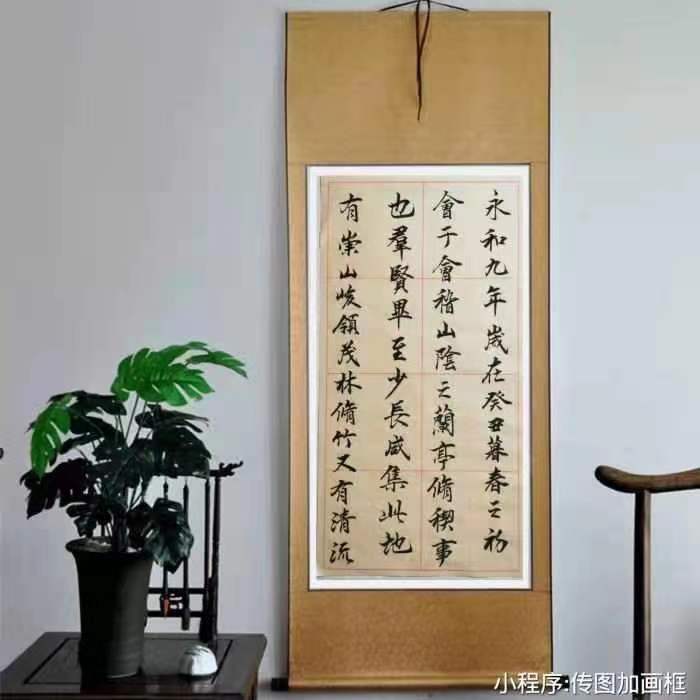 永和九年歲在癸丑暮春之初
會于會稽山陰之蘭亭脩稧事
也羣賢畢至少長咸集此地
有崇山峻領茂林脩竹又有清流
小程序:传图加画框